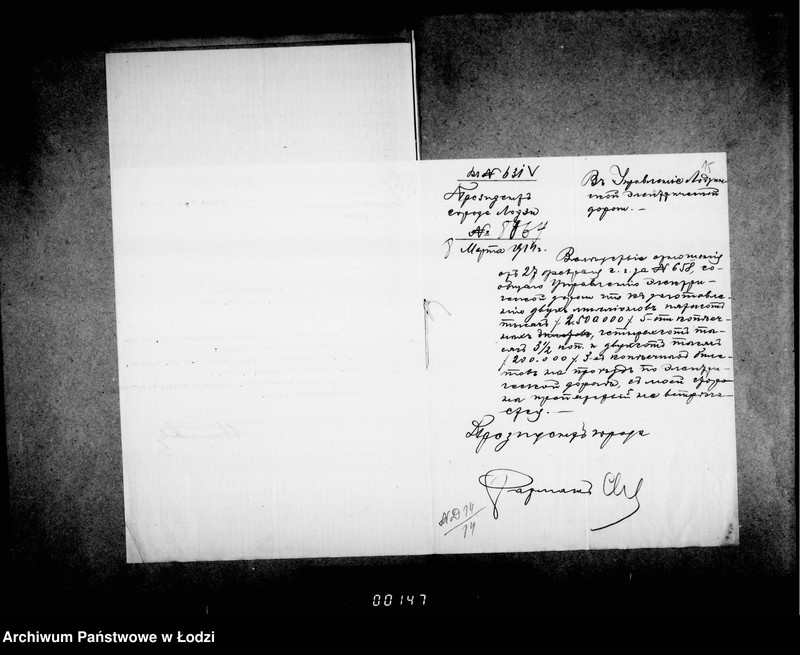 15
Президентъ
города Лодзи
№ 5764
8 Марта 1914 г.
Въ Управленіе Лодзин-
ской электрической
дороги. —
Вслѣдствіе отношенія
отъ 27 февраля с. г. за № 658, со-
общаю Управленію электри-
ческой дороги что на изготовле-
ніе двухъ милліоновъ пятисотъ
тысячъ /2.500.000/ 5-ти копѣеч-
ныхъ билетовъ, четырехсотъ ты-
сячъ 3½ коп. и двухсотъ тысячъ
/200.000/ 3-хъ копѣечной биле-
товъ на проѣздъ по электри-
ческой дорогѣ, съ моей сторо-
ны препятствій не встрѣча-
ется. —
Президентъ города
00147
Archiwum Państwowe w Łodzi